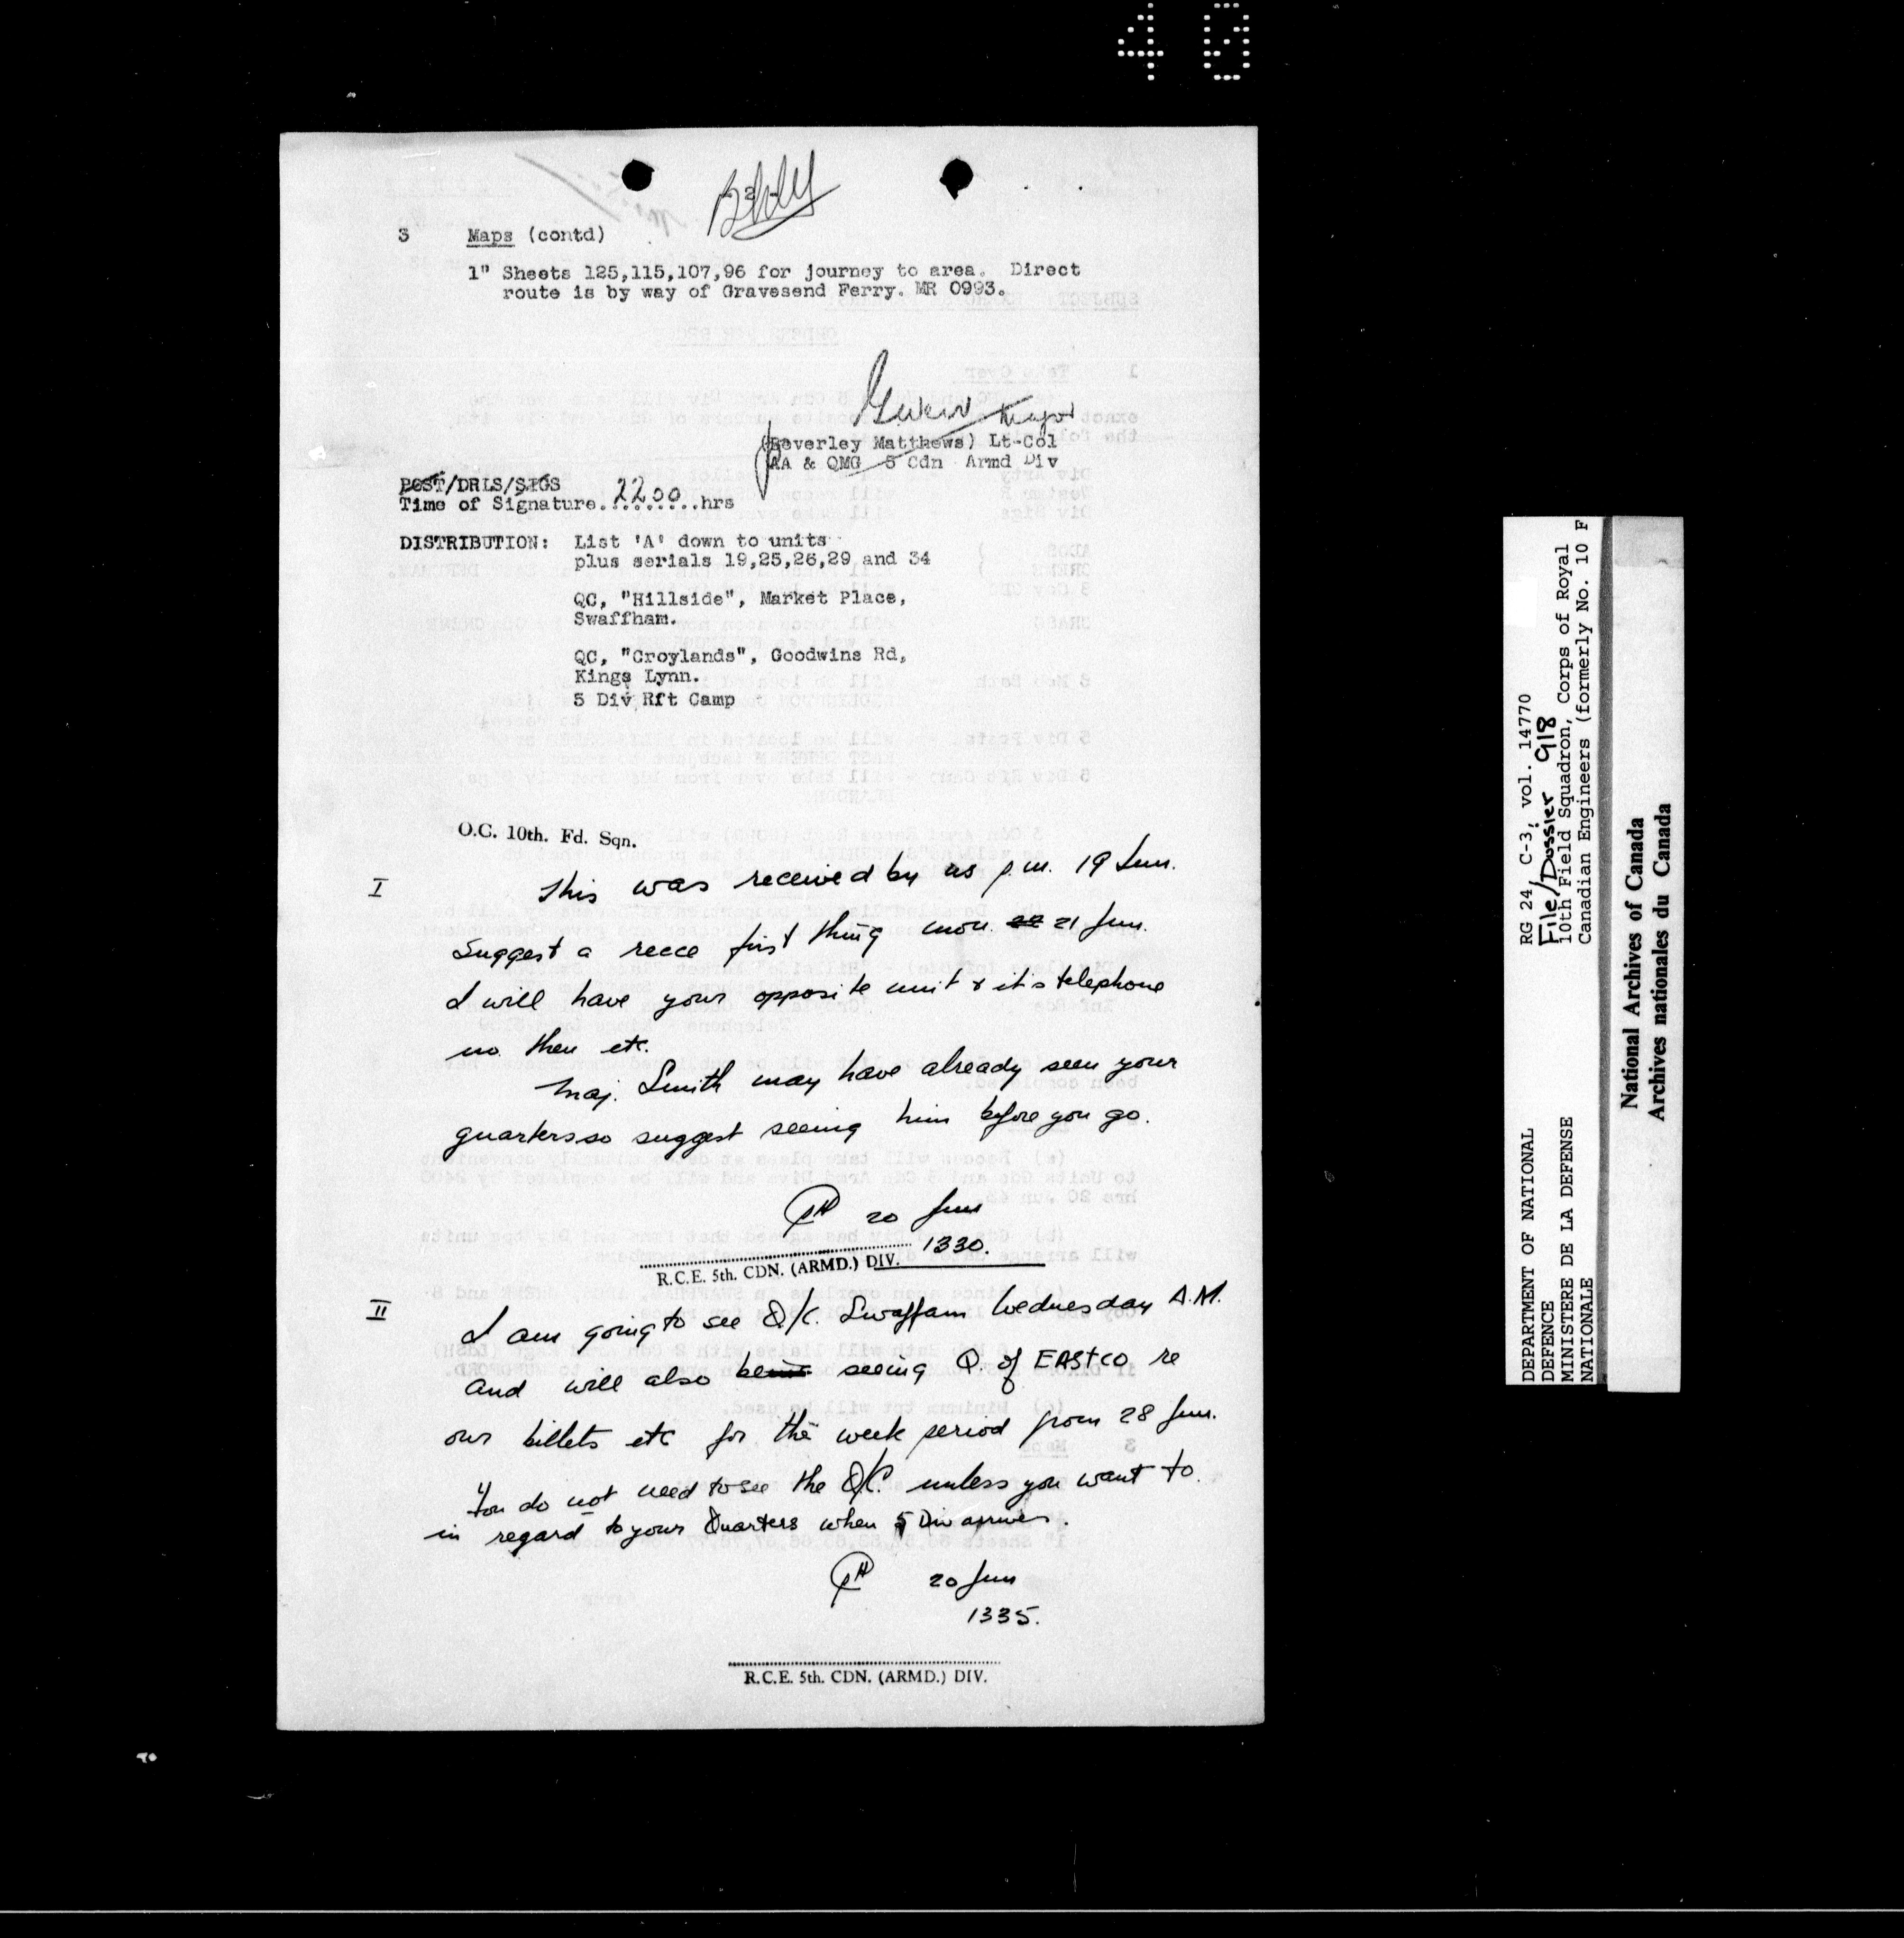 40
- 2 -
3 Maps (contd)
1" Sheets 125,115,107,96 for journey to area. Direct
route is by way of Gravesend Ferry. MR 0993.
Major
(Beverley Matthews) Lt-Col
AA & QMG 5 Cdn Armd Div
POST/DRLS/SIGS
Time of Signature..2200..hrs
DISTRIBUTION: List 'A' down to units
plus serials 19,25,26,29 and 34
QC, "Hillside", Market Place,
Swaffham.
QC, "Croylands", Goodwins Rd,
Kings Lynn.
5 Div Rft Camp
O.C. 10th. Fd. Sqn.
I This was received by us p.m. 19 Jun.
Suggest a recce first thing mon. 22 21 Jun.
I will have your opposite unit & it's telephone
no. then etc.
Maj. Smith may have already seen your
quarters so suggest seeing him before you go.
20 Jun
1330.
R.C.E. 5th. CDN. (ARMD.) DIV.
II I am going to see Q/C. Swaffam Wednesday A.M.
and will also being seeing Q. of EASTCO re
our billets etc for the week period from 28 Jun.
You do not need to see the Q/C. unless you want to
in regard to your Quarters when 5 Div arrives.
20 Jun
1335.
R.C.E. 5th. CDN. (ARMD.) DIV.
RG 24, C-3, vol. 14770
File/Dossier 918
10th Field Squadron, Corps of Royal
Canadian Engineers (formerly No. 10 F
DEPARTMENT OF NATIONAL
DEFENCE
MINISTERE DE LA DEFENSE
NATIONALE
National Archives of Canada
Archives nationales du Canada